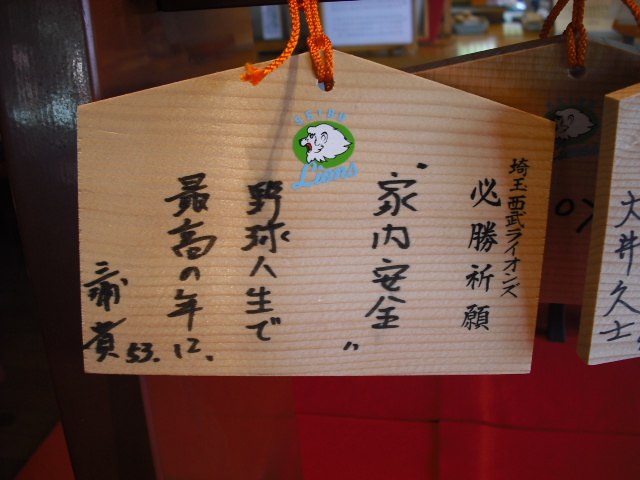 SEIBU
Lions
埼玉西武ライオンズ
必勝祈願
〝家内安全〟
野球人生で
最高の年に、
三浦 貴 53.
大井久士